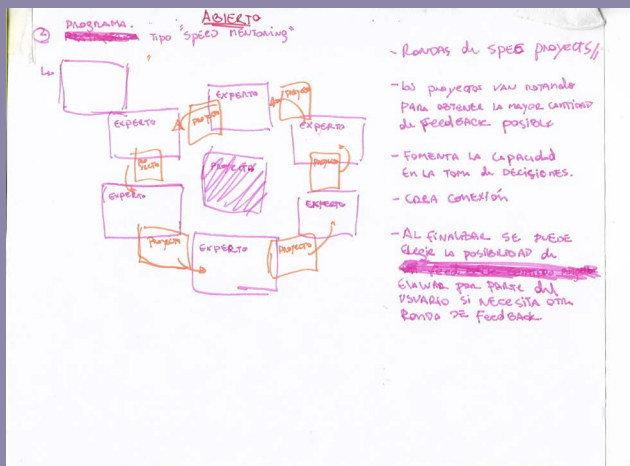 ABIERTO
② PROGRAMA.
TIPO "SPEED MENTORING"
EXPERTO
PROYECTO
PROYECTO
EXPERTO
EXPERTO
PROYECTO
PROYECTO
PROYECTO
EXPERTO
EXPERTO
PROYECTO
EXPERTO
PROYECTO
- RONDAS de SPEE proyects//
- los proyectos van rotando
PARA OBTENER LA MAYOR CANTIDAD
de FEEDBACK posible
- FOMENTA LA CAPACIDAD
EN LA TOMA de DECISIONES.
- CREA CONEXIÓN
- AL FINALIZAR SE PUEDE
ELEGIR LA POSIBILIDAD de
EVALUAR POR PARTE del
USUARIO SI NECESITA OTRA
RONDA DE FEEDBACK